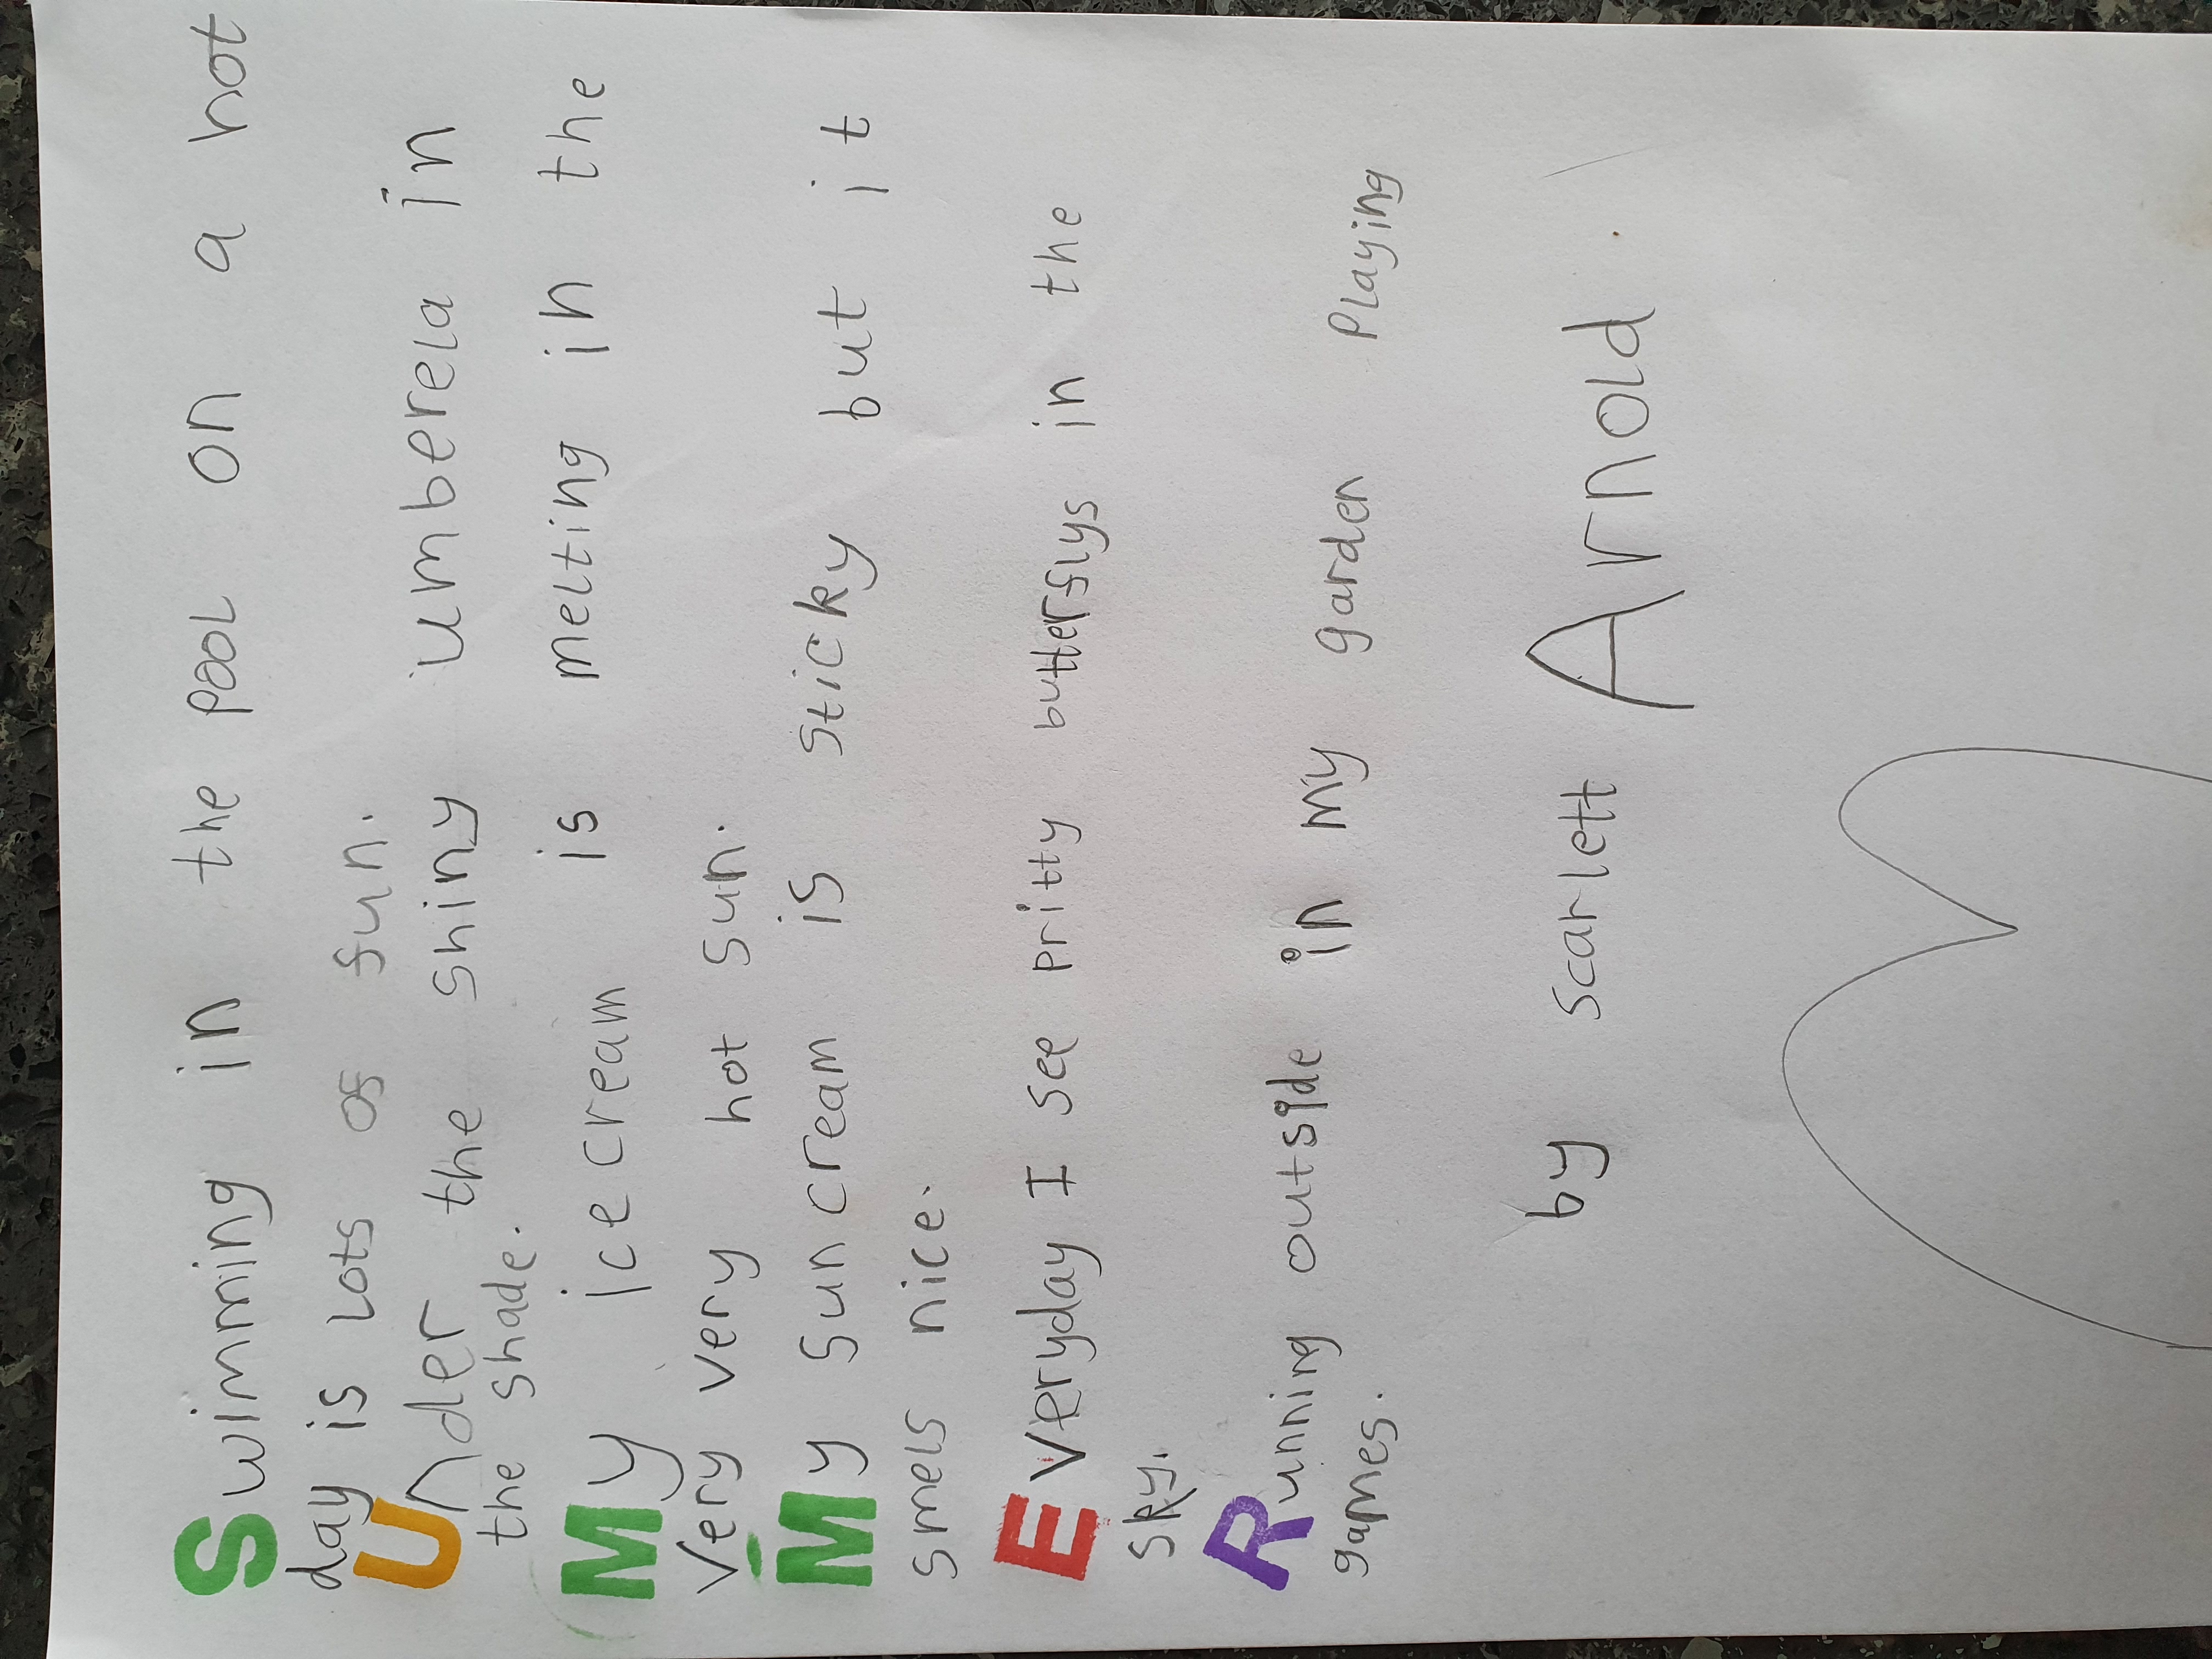 Swimming in the pool on a hot
day is lots of fun.
Under the shiny umberela in
the shade.
My ice cream is melting in the
very very hot sun.
My sun cream is sticky but it
smels nice.
Everyday I see pritty butterflys in the
sky.
Running outside in my garden playing
games.
by scarlett Arnold